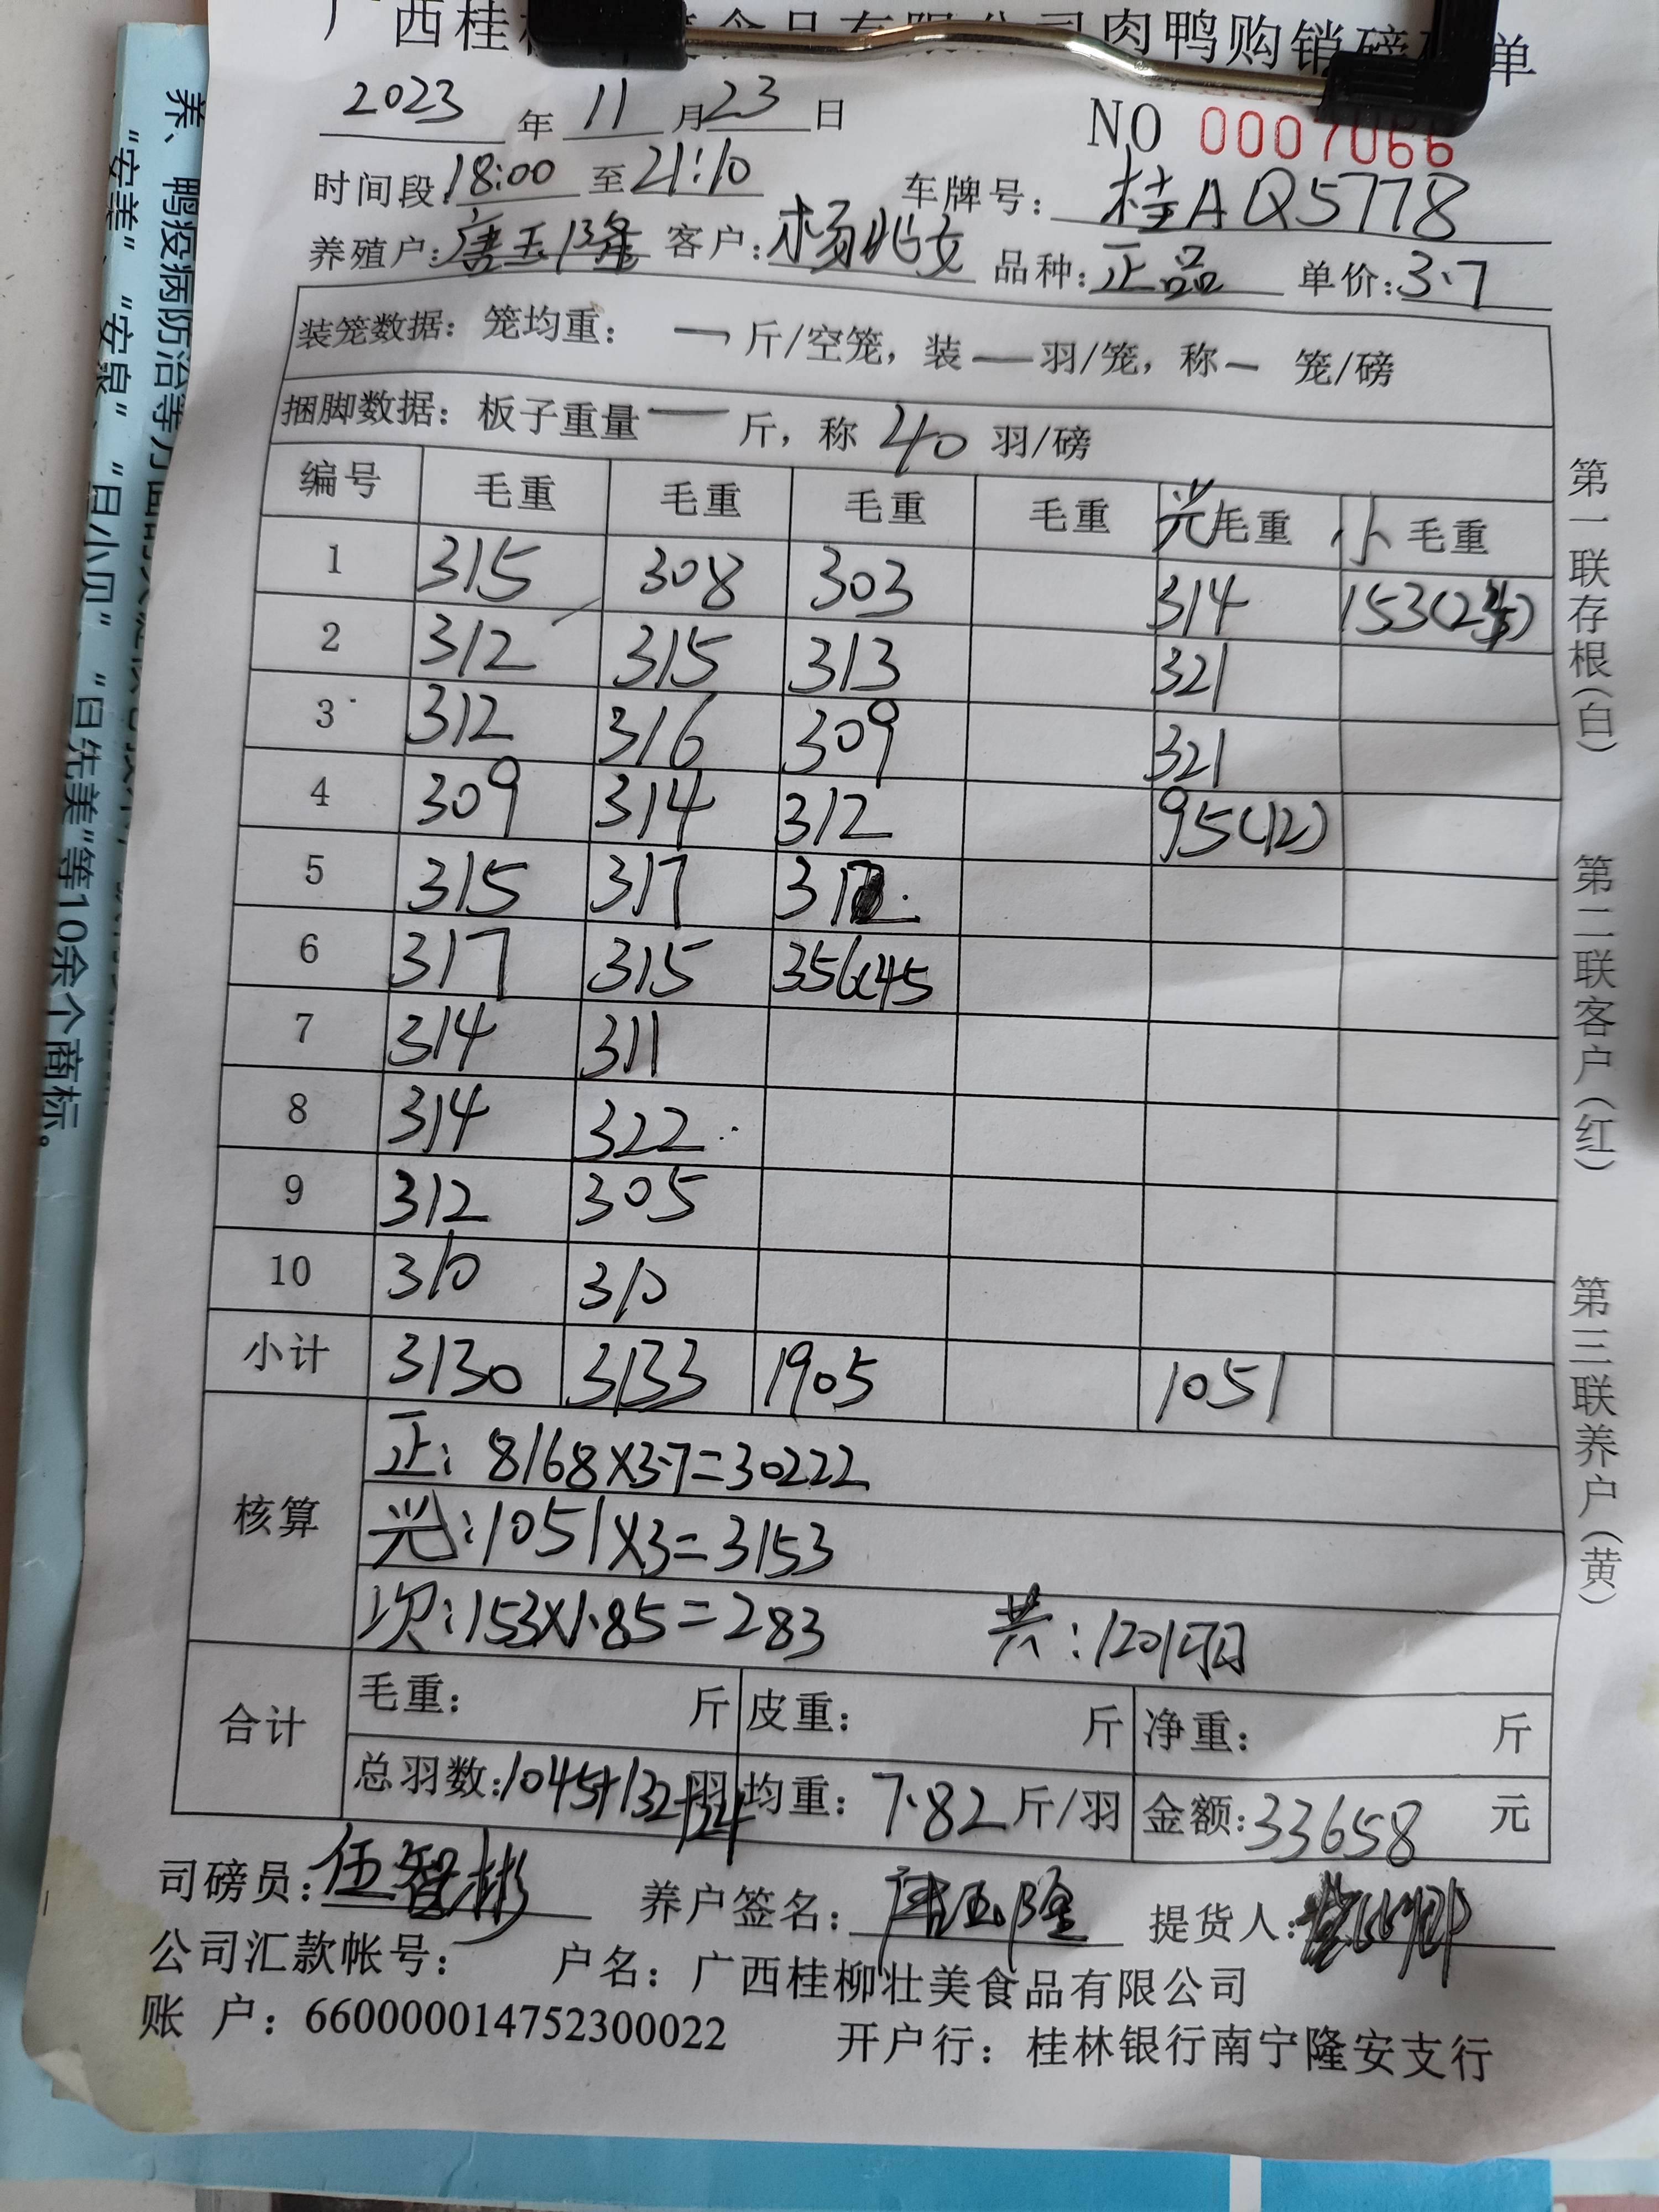 广西桂 食品有限公司肉鸭购销磅 单
2023 年 11 月 23 日
NO 0007066
时间段 18:00 至 21:10 车牌号: 桂AQ5778
养殖户: 唐玉隆 客户: 杨兆文 品种: 正品 单价: 3.7
装笼数据: 笼均重: 一 斤/空笼, 装 一 羽/笼, 称 一 笼/磅
捆脚数据: 板子重量 一 斤, 称 40 羽/磅
编号 毛重 毛重 毛重 毛重 光毛重 小毛重
1 315 308 303 314 153(24)
2 312 315 313 321
3 312 316 309 321
4 309 314 312 95(12)
5 315 317 312
6 317 315 356(45
7 314 311
8 314 322
9 312 305
10 310 310
小计 3130 3133 1905 1051
核算
正: 8168×3.7=30222
光: 1051×3=3153
次: 153×1.85=283 共: 1201羽
合计
毛重: 斤 皮重: 斤 净重: 斤
总羽数: 1045+132+24 羽 均重: 7.82 斤/羽 金额: 33658 元
司磅员: 伍智彬 养户签名: 唐玉隆 提货人:
公司汇款帐号: 户名: 广西桂柳壮美食品有限公司
账 户: 660000014752300022 开户行: 桂林银行南宁隆安支行
第一联存根(白)
第二联客户(红)
第三联养户(黄)
养、鸭疫病防治等方面
“安美”、“安泉”、“日小贝”、“日先美”等10余个商标。